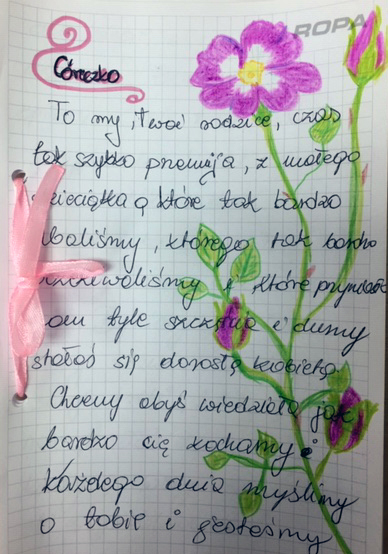 ROPA
Córeczko
To my, twoi rodzice, czas
tak szybko przemija, z małego
dzieciątka o które tak bardzo
dbaliśmy, którego tak bardzo
i które przyniosło
nam tyle szczęścia i dumy
stałaś się dorosłą kobietą.
Chcemy abyś wiedziała jak
bardzo cię kochamy i
każdego dnia myślimy
o tobie i jesteśmy